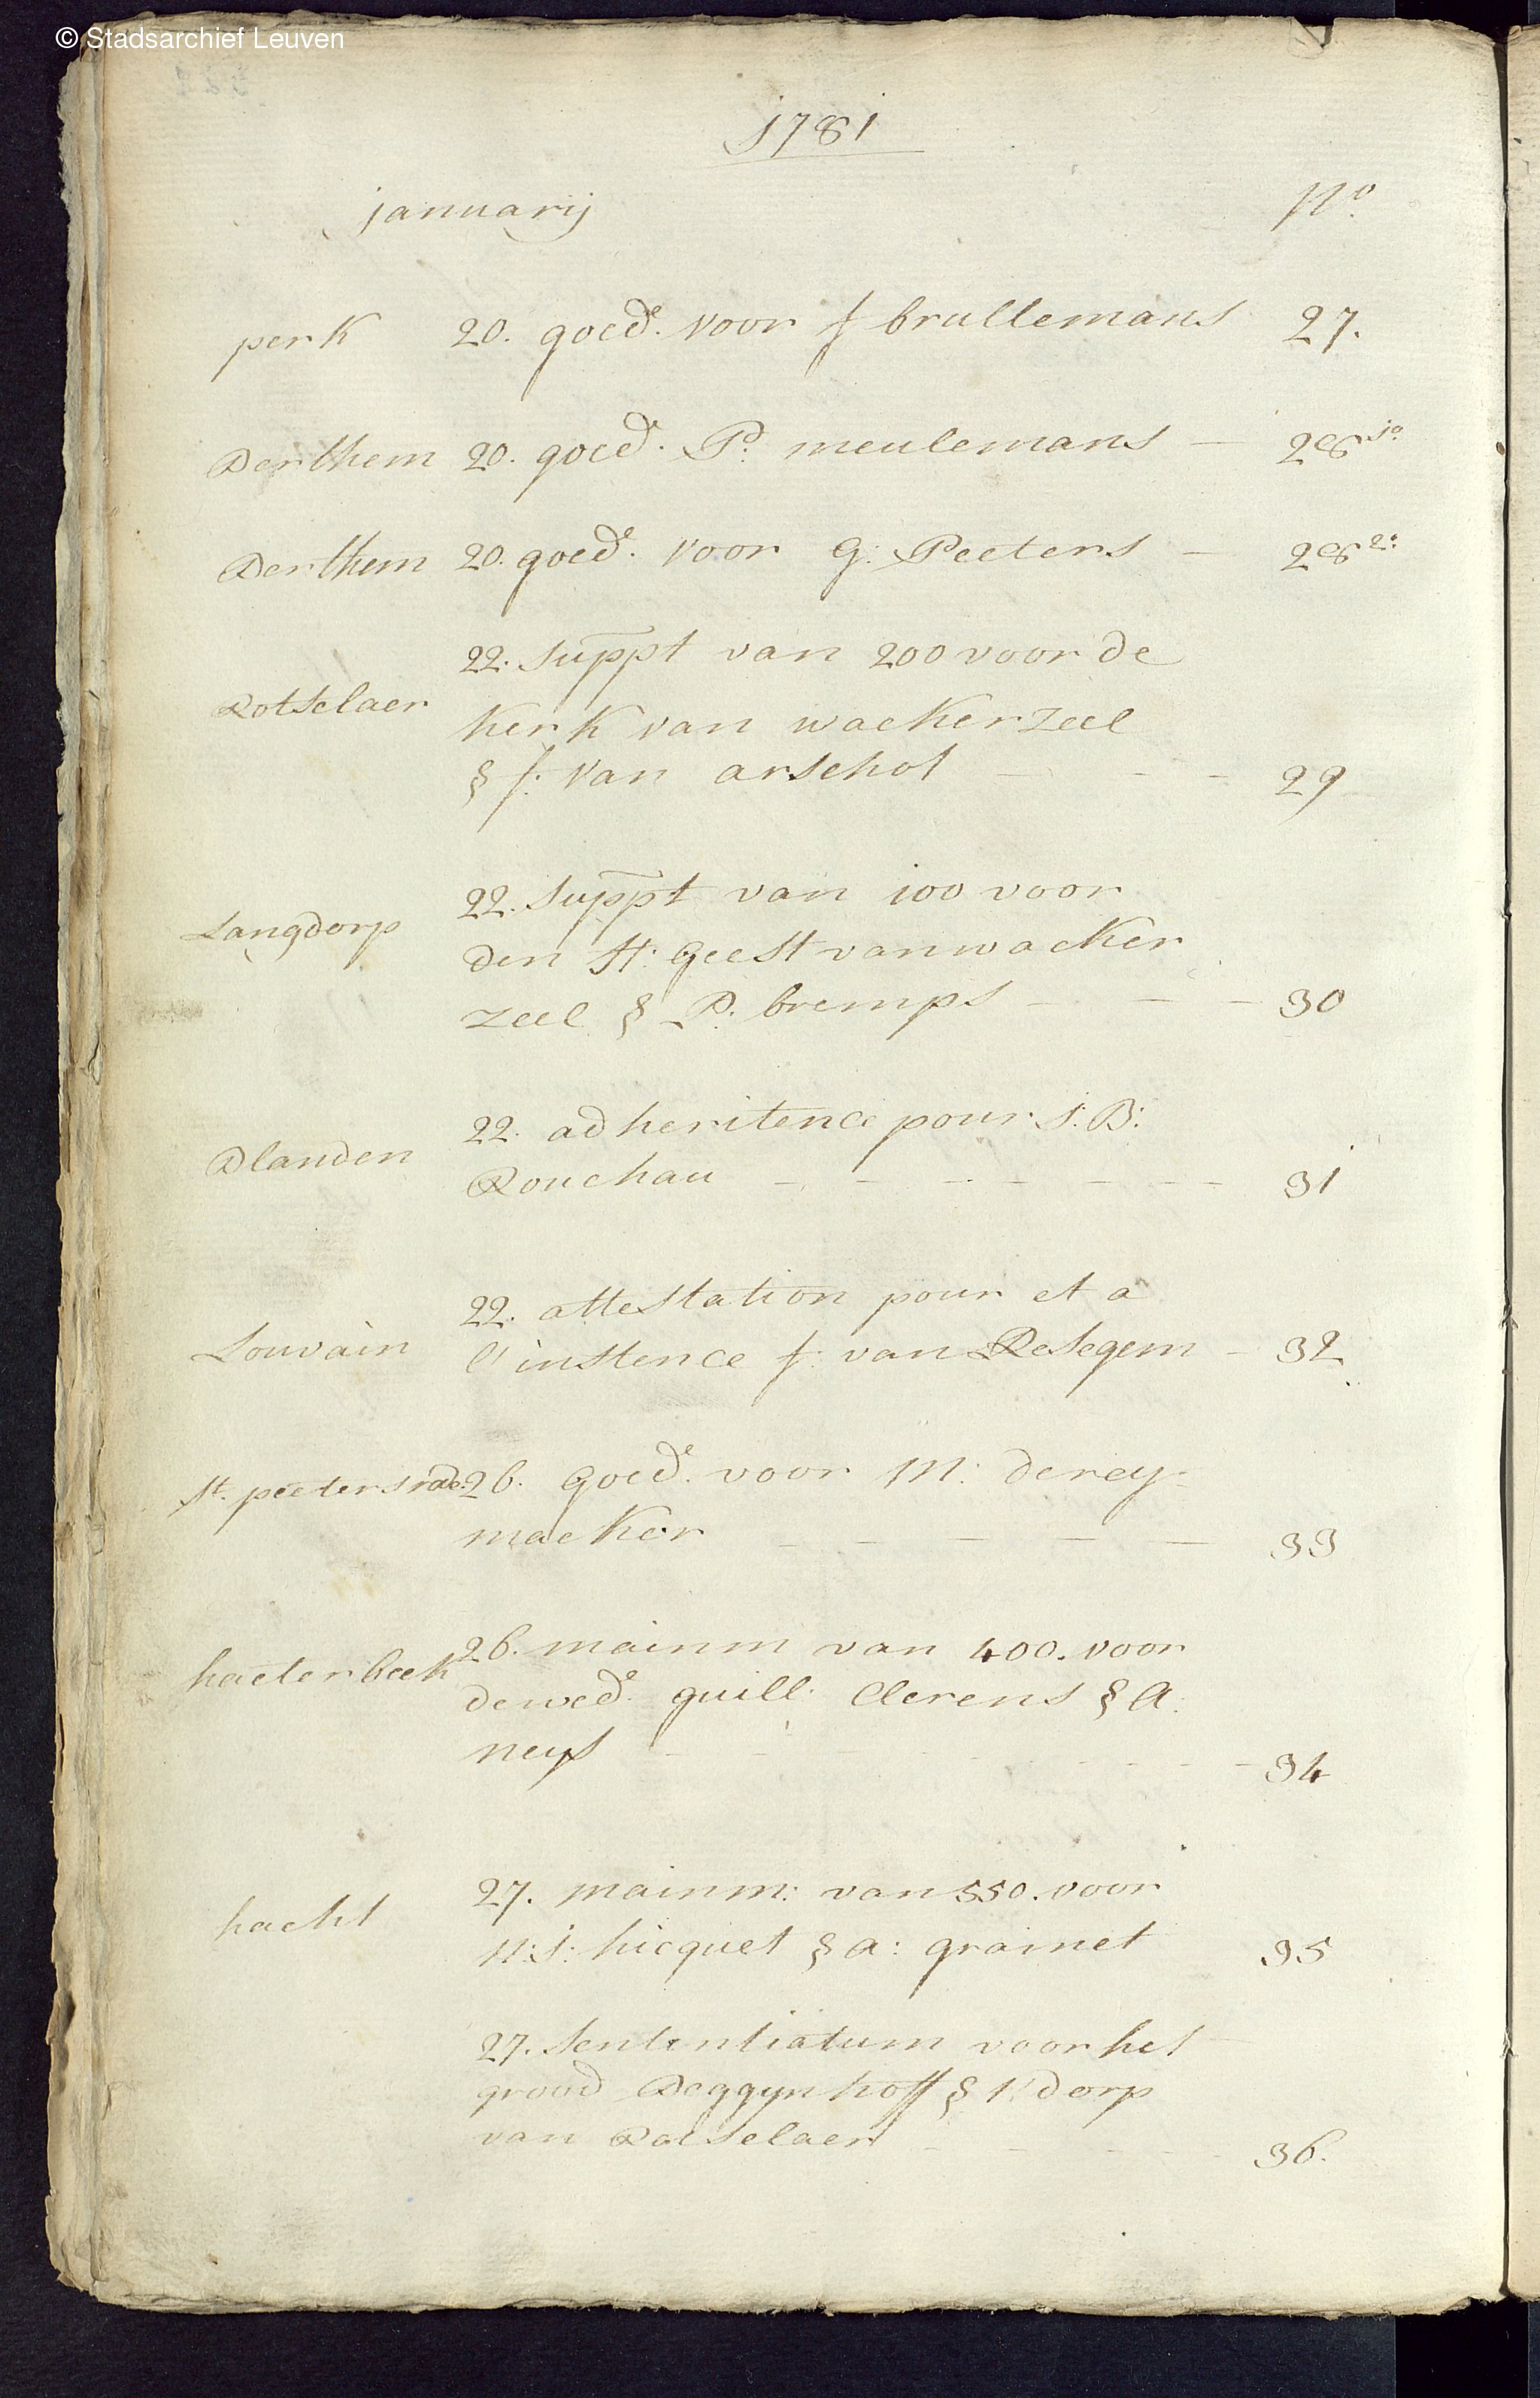 © Stadsarchief Leuven
1781
januarij Nº.
perk 20. goedᵉ. voor f brullemans 27.
Berthem 20. goedᵉ. P. meulemans - 28 1º
Berthem 20. goedᵉ. voor G: Peeters - 28 2º
22. suppt van 200 voor de
Rotselaer
kerk van wackerzeel
§ f: van arschot - - - 29
22. suppt van 100 voor
Langdorp
den H: Geest van wacker
zeel § P: bremps - - - 30
22. adheritence pour J: B:
Blanden
Rouchau - - - - - - - 31
22. attestation pour et a
Louvain l'instence f: van Resegem - 32
St. peetersrode 26. Goedᵉ. voor M: derey-
macker - - - - - 33
26. mainm van 400. voor
haeterbeek
dewedᵉ. guill: Clerens § A:
neys - - - - - - - 34
27. mainm: van 550. voor
hacht
N: J: hicquet § a: grainet 35
27. sententiatum voor het
grood Beggynhoff § t' dorp
van Rotselaer - - - - - 36.